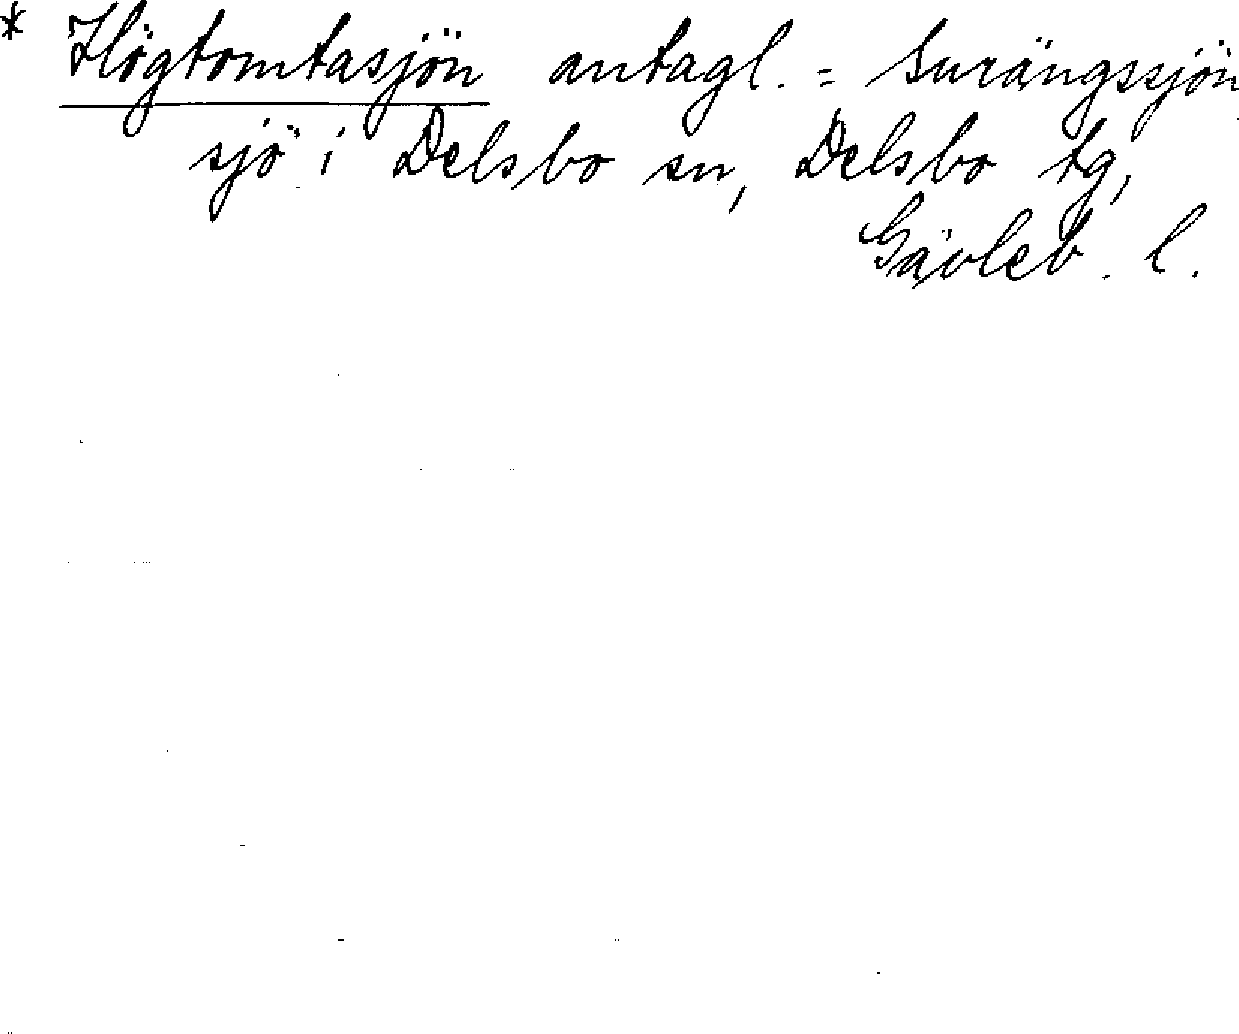 * Högtomtasjön antagl. = Surängssjön
sjö i Delsbo sn, Delsbo tg,
Gävleb. l.